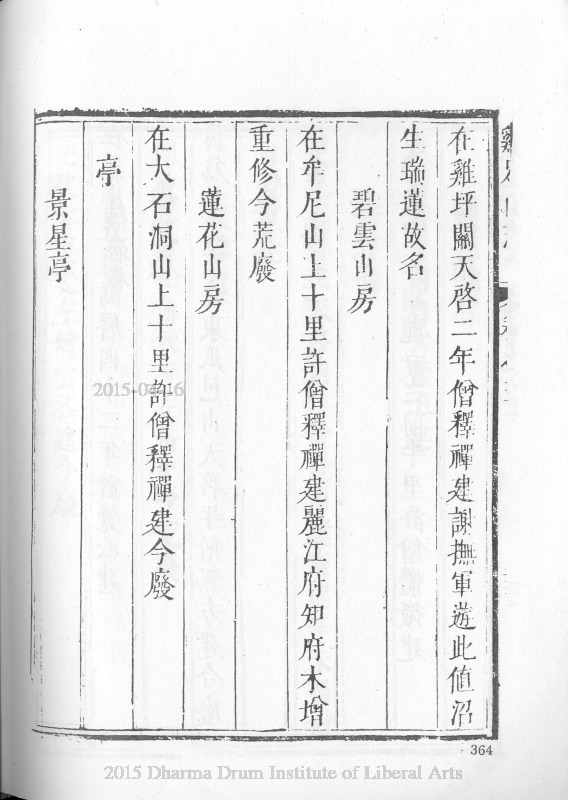 在雞坪關天啓二年僧釋禪建謝撫軍遊此値沼
生瑞蓮故名
碧雲山房
在牟尼山上十里許僧釋禪建麗江府知府木增
重修今荒廢
蓮花山房
在大石洞山上十里許僧釋禪建今廢
亭
景星亭
364
2015-04-16
2015 Dharma Drum Institute of Liberal Arts